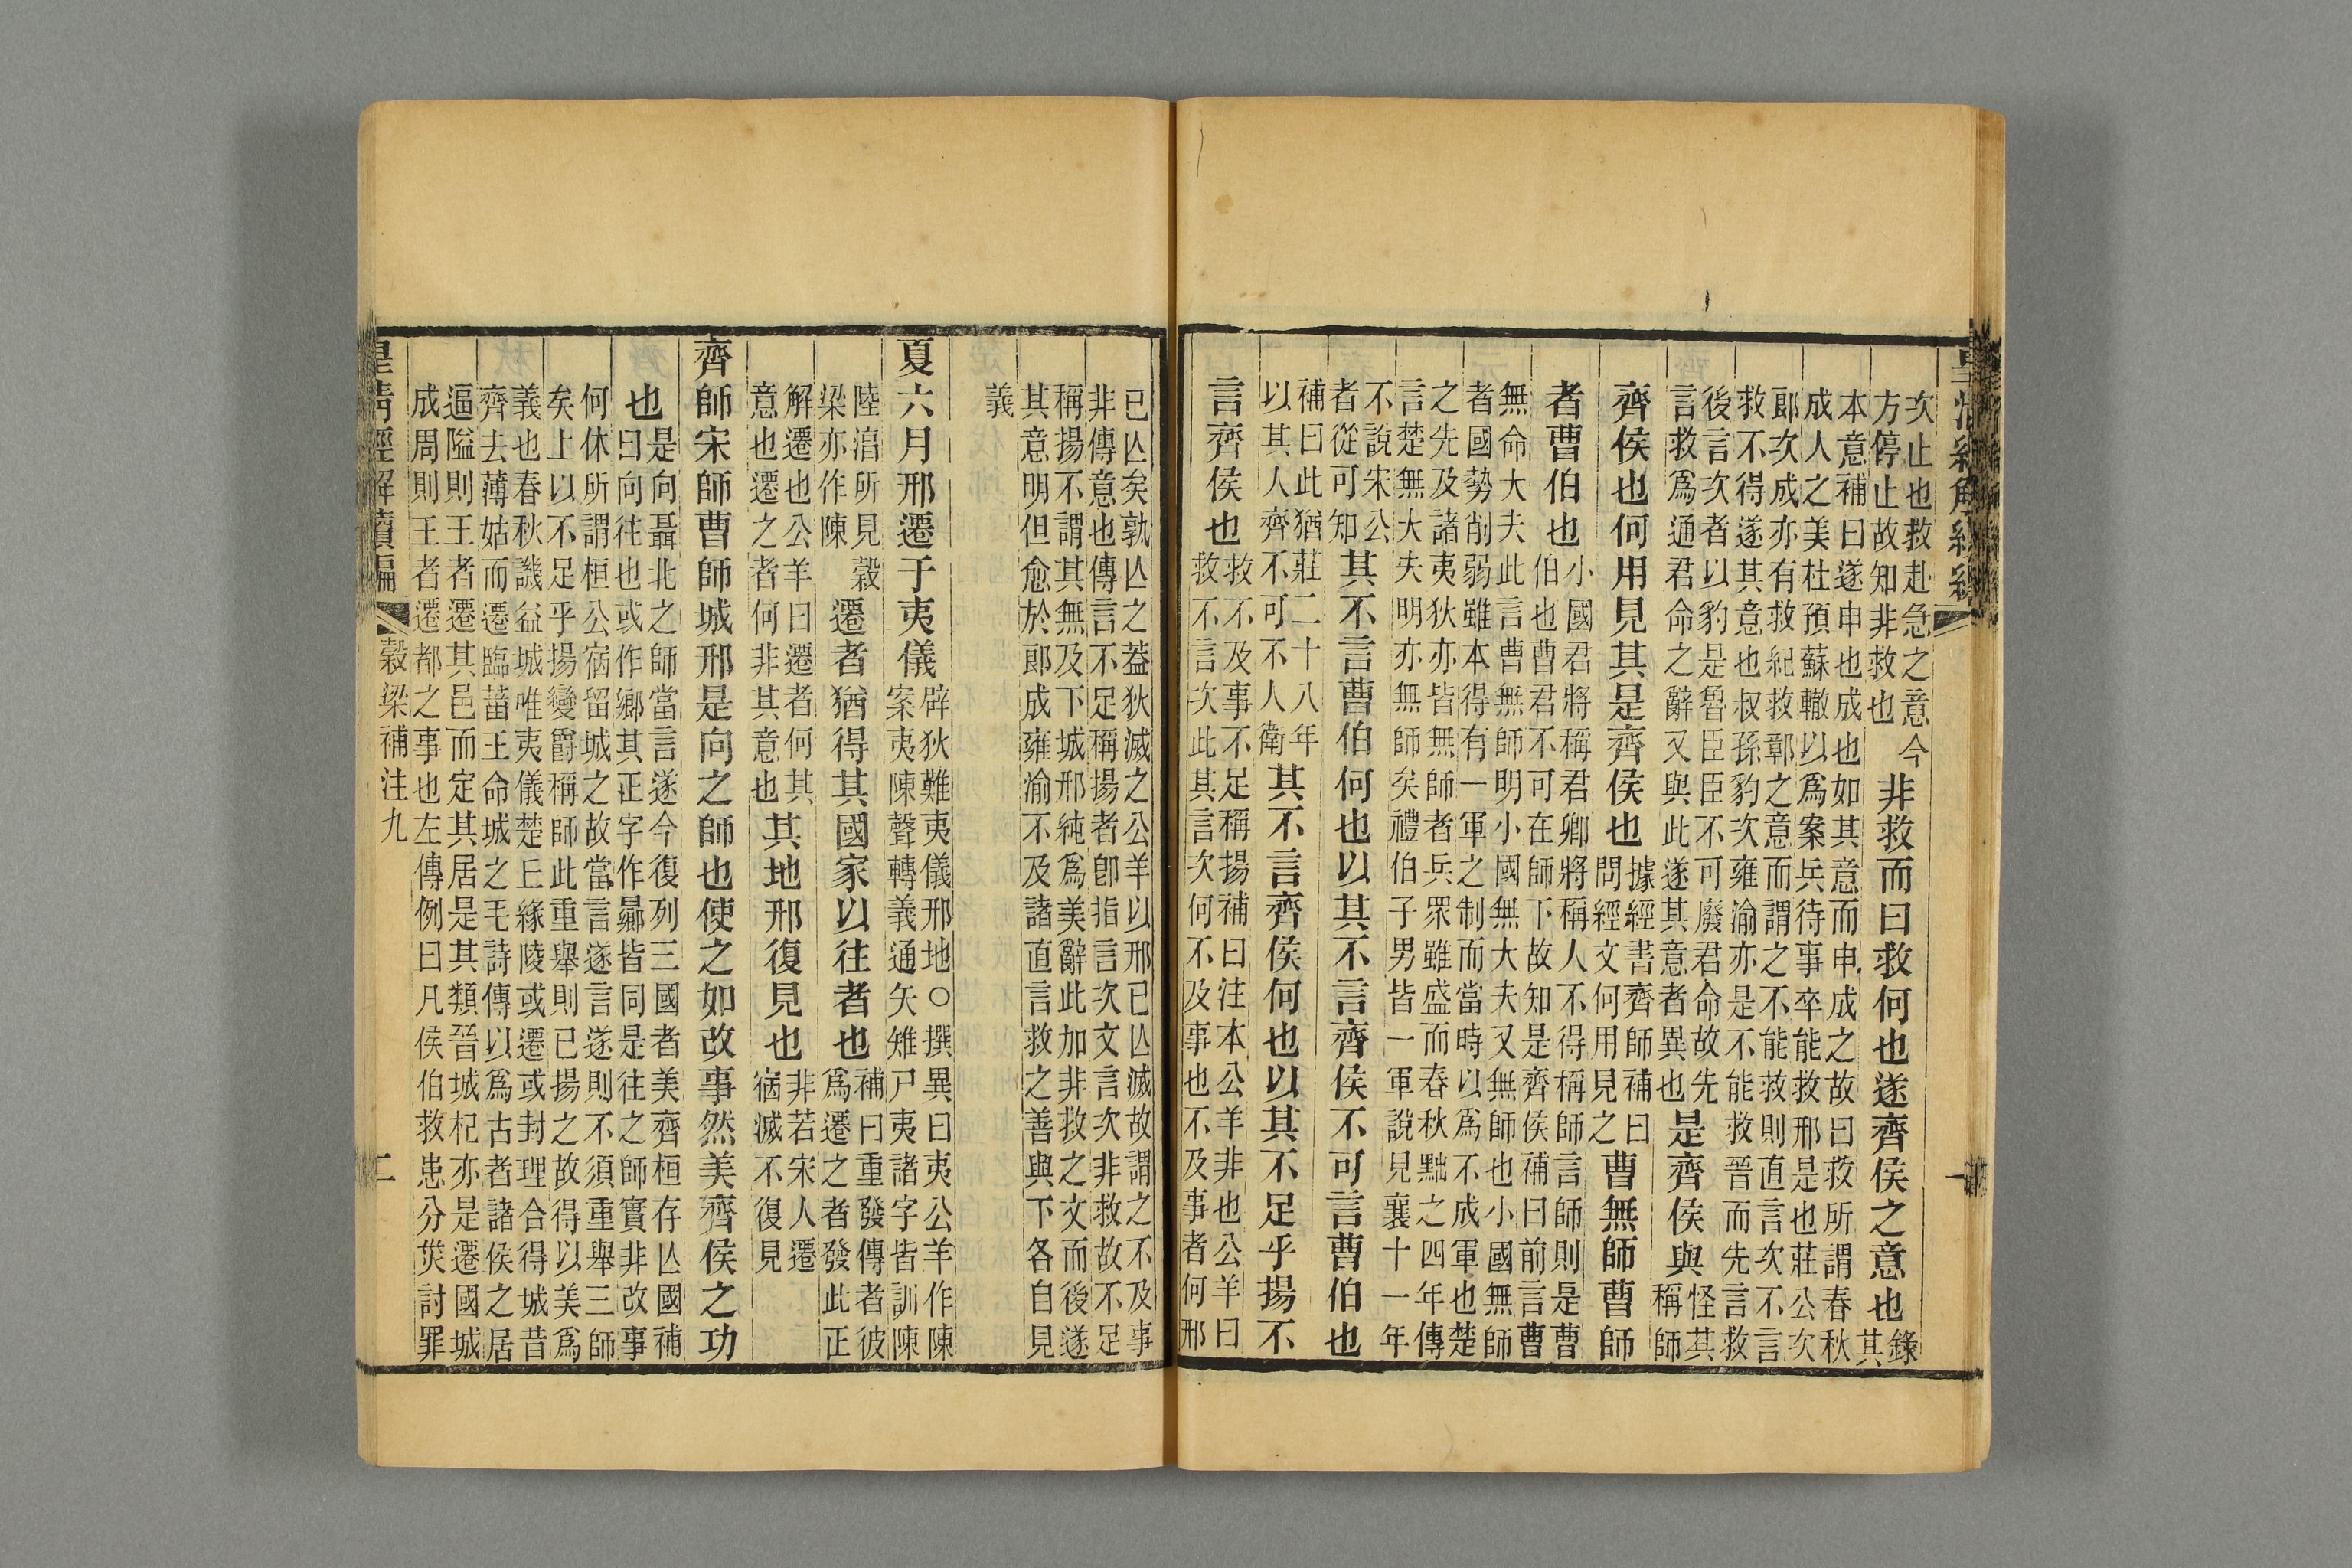 皇清經解續編
一
次止也救赴急之意今
方停止故知非救也
非救而曰救何也遂齊侯之意也
錄
其
本意補曰遂申也成也如其意而申成之故曰救所謂春秋
成人之美杜預蘇轍以爲案兵待事卒能救邢是也莊公次
郎次成亦有救紀救鄣之意而謂之不能救則直言次不言
救不得遂其意也叔孫豹次雍渝亦是不能救晉而先言救
後言次者以豹是魯臣臣不可廢君命故先
言救爲通君命之辭又與此遂其意者異也
是齊侯與
怪其
稱師
齊侯也何用見其是齊侯也
據經書齊師補曰
問經文何用見之
曹無師曹師
者曹伯也
小國君將稱君卿將稱人不得稱師言師則是曹
伯也曹君不可在師下故知是齊侯補曰前言曹
無命大夫此言曹無師明小國無大夫又無師也小國無師
者國勢削弱雖本得有一軍之制而當時以爲不成軍也楚
之先及諸夷狄亦皆無師者兵眾雖盛而春秋黜之四年傳
言楚無大夫明亦無師矣禮伯子男皆一軍說見襄十一年
不說宋公
者從可知
其不言曹伯何也以其不言齊侯不可言曹伯也
補曰此猶莊二十八年
以其人齊不可不人衛
其不言齊侯何也以其不足乎揚不
言齊侯也
救不及事不足稱揚補曰注本公羊非也公羊曰
救不言次此其言次何不及事也不及事者何邢
已亾矣孰亾之葢狄滅之公羊以邢已亾滅故謂之不及事
非傳意也傳言不足稱揚者卽指言次文言次非救故不足
稱揚不謂其無及下城邢純爲美辭此加非救之文而後遂
其意明但愈於郎成雍渝不及諸直言救之善與下各自見
義
夏六月邢遷于夷儀
辟狄難夷儀邢地○撰異曰夷公羊作陳
案夷陳聲轉義通矢雉尸夷諸字皆訓陳
陸湻所見穀
梁亦作陳
遷者猶得其國家以往者也
補曰重發傳者彼
爲遷之者發此正
解遷也公羊曰遷者何其
意也遷之者何非其意也
其地邢復見也
非若宋人遷
宿滅不復見
齊師宋師曹師城邢是向之師也使之如改事然美齊侯之功
也
是向聶北之師當言遂今復列三國者美齊桓存亾國補
曰向往也或作鄉其正字作曏皆同是往之師實非改事
何休所謂桓公宿留城之故當言遂言遂則不須重舉三師
矣上以不足乎揚變爵稱師此重舉則已揚之故得以美爲
義也春秋譏益城唯夷儀楚丘緣陵或遷或封理合得城昔
齊去薄姑而遷臨菑王命城之毛詩傳以爲古者諸侯之居
逼隘則王者遷其邑而定其居是其類晉城杞亦是遷國城
成周則王者遷都之事也左傳例曰凡侯伯救患分烖討罪
皇清經解續編
穀梁補注九
二